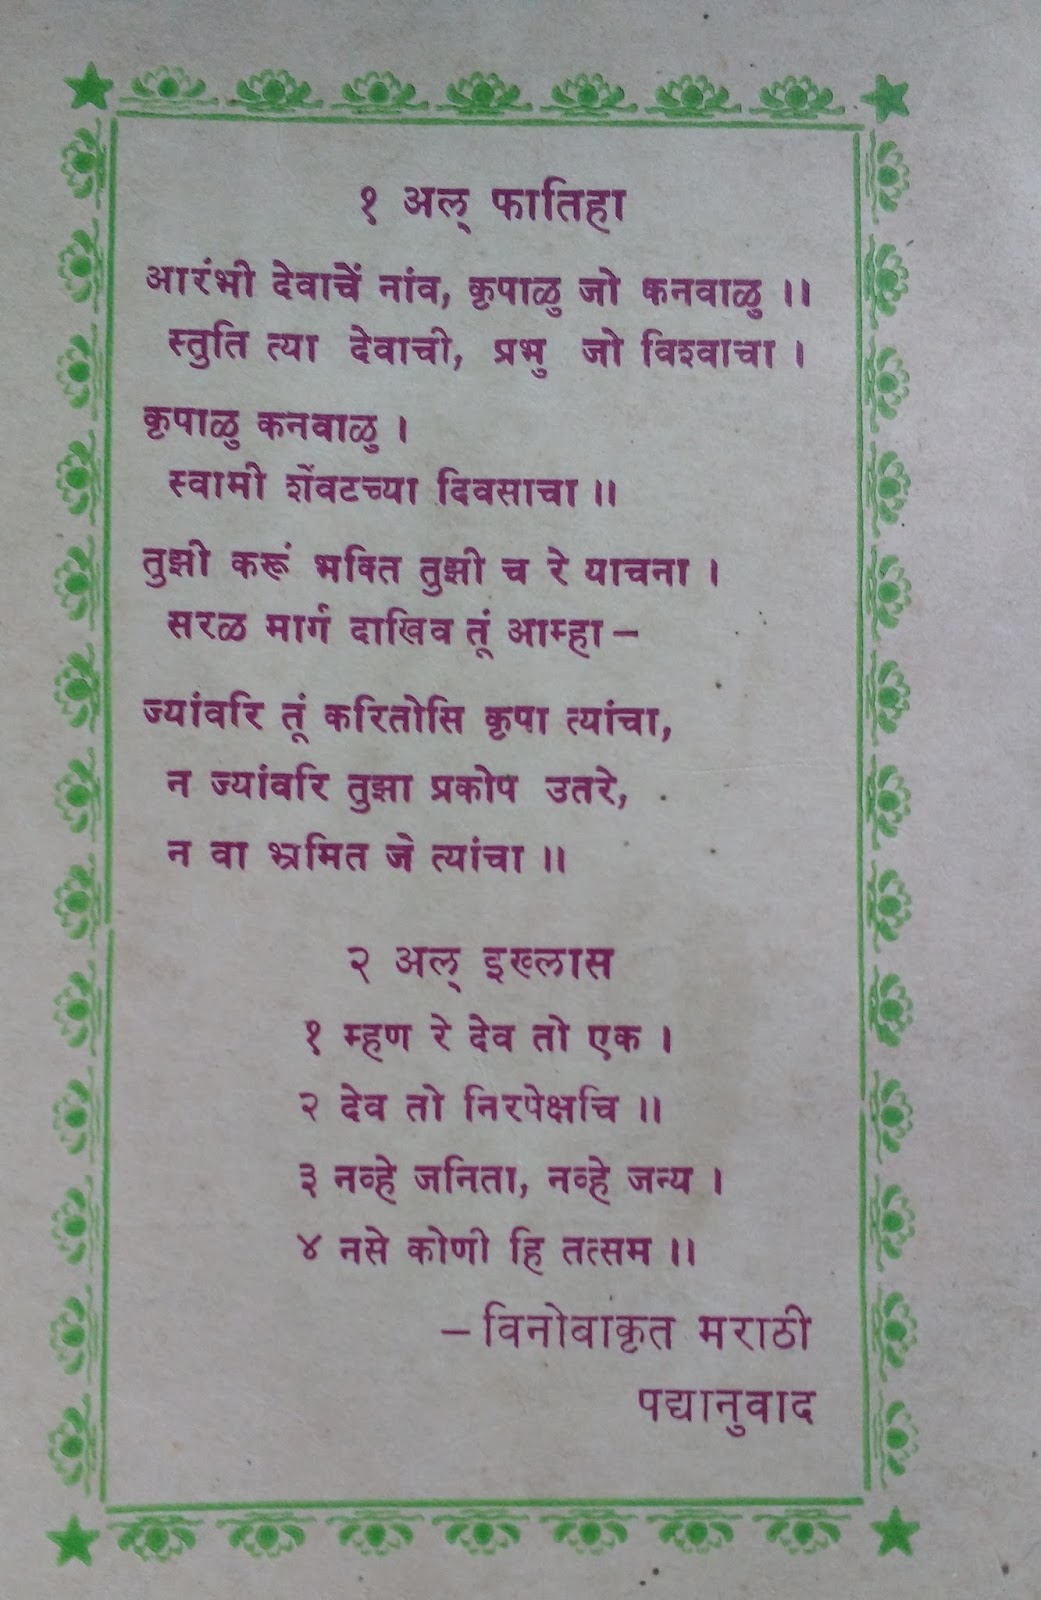 १ अल् फातिहा
आरंभी देवाचें नांव, कृपाळु जो कनवाळु ।।
स्तुति त्या देवाची, प्रभु जो विश्वाचा ।
कृपाळु कनवाळु ।
स्वामी शेंवटच्या दिवसाचा ।।
तुझी करूं भक्ति तुझी च रे याचना ।
सरळ मार्ग दाखिव तूं आम्हा –
ज्यांवरि तूं करितोसि कृपा त्यांचा,
न ज्यांवरि तुझा प्रकोप उतरे,
न वा भ्रमित जे त्यांचा ।।
२ अल् इख्लास
१ म्हण रे देव तो एक ।
२ देव तो निरपेक्षचि ।।
३ नव्हे जनिता, नव्हे जन्य ।
४ नसे कोणी हि तत्सम ।।
– विनोबाकृत मराठी
पद्यानुवाद